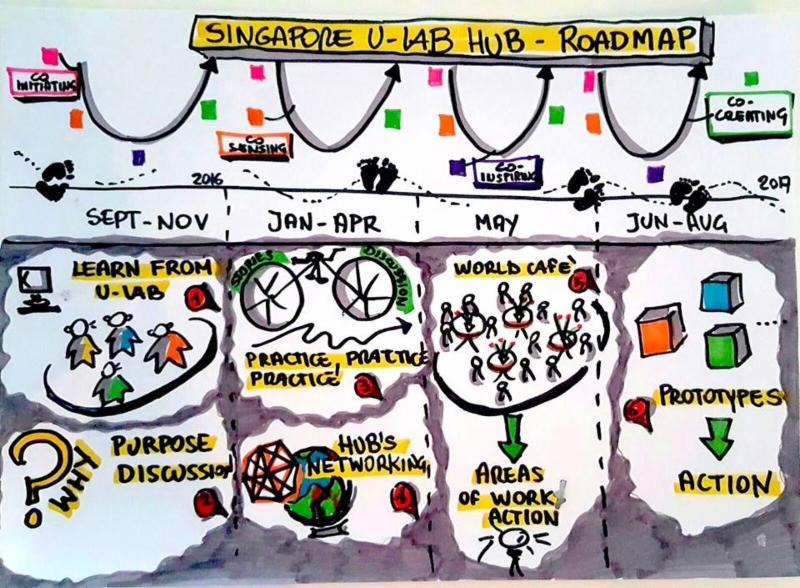 SINGAPORE U-LAB HUB - ROADMAP
CO
INITIATING
CO
SENSING
CO-
INSPIRING
CO-
CREATING
2016
2017
SEPT-NOV
JAN-APR
MAY
JUN-AUG
LEARN FROM
U-LAB
1
WHY
PURPOSE
DISCUSSION
2
STORIES
DISCUSSION
PRACTICE, PRACTICE
PRACTICE!
3
HUB'S
NETWORKING
4
WORLD CAFE'
5
AREAS
OF WORK/
ACTION
PROTOTYPES
6
ACTION